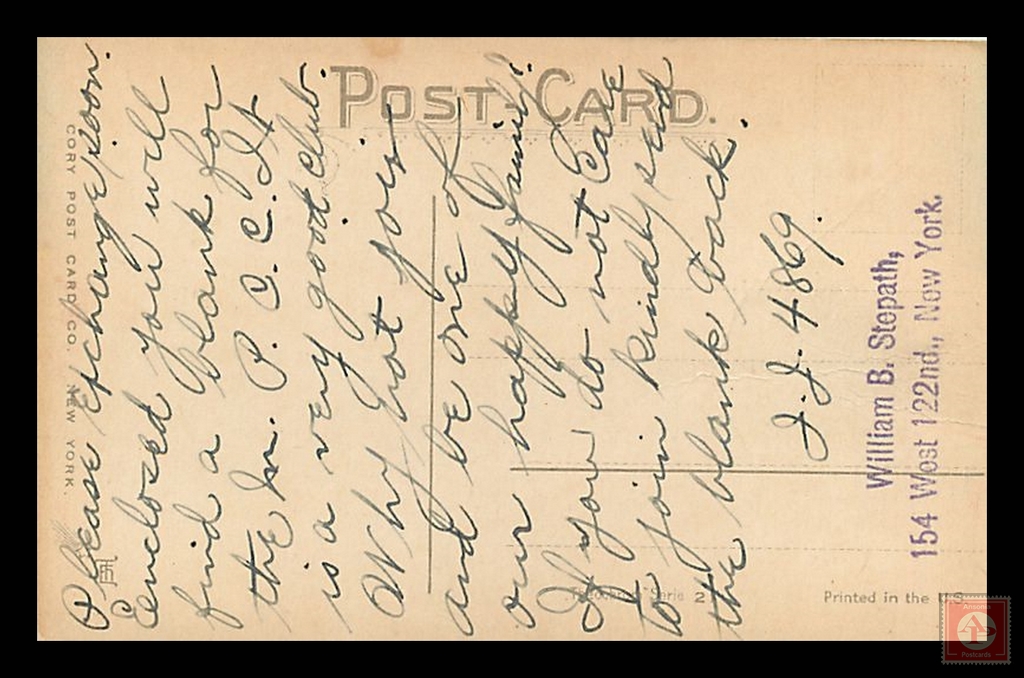 POST CARD.
CORY POST CARD CO. NEW YORK.
Please Exchange soon.
Enclosed you will
find a blank for
the M. P. C. C. It
is a very good club.
Why not join
and be one of
our happy family.
If you do not Care
to join kindly send
the blank back.
J. J. 4869.
William B. Stepath,
154 West 122nd., New York.
Serie 2
Printed in the U.S.
Postcards